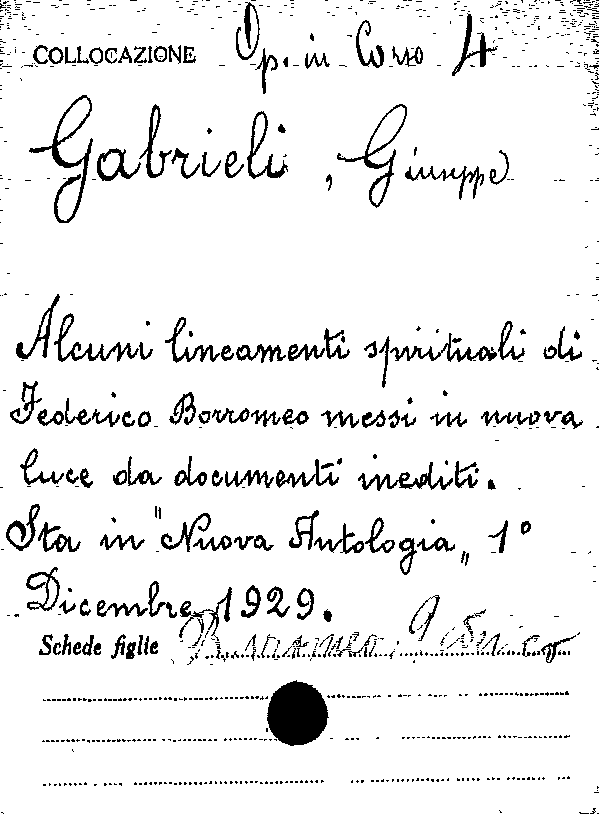 COLLOCAZIONE Op. in Corso 4
Gabrieli, Giuseppe
Alcuni lineamenti spirituali di
Federico Borromeo messi in nuova
luce da documenti inediti.
Sta in "Nuova Antologia„ 1°
Dicembre 1929.
Schede figlie Borromeo, Federico